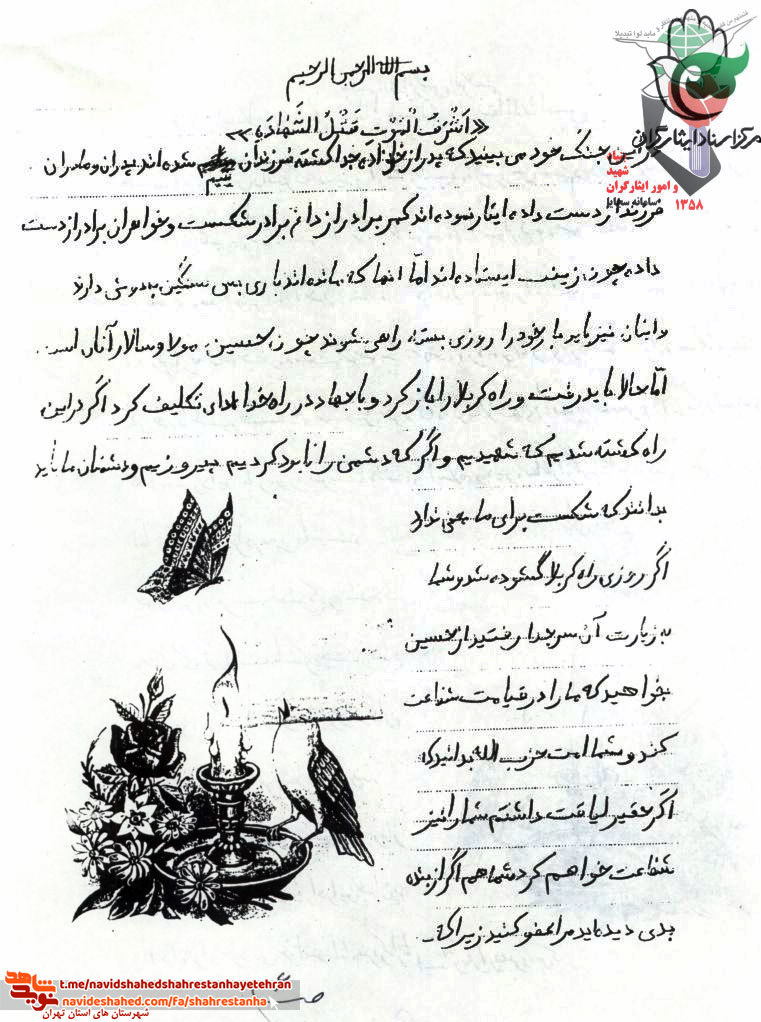 بسم الله الرحمن الرحیم
«اَشْرَفُ الْمَوْتِ قَتْلُ الشَّهادَة»
مرکز اسناد ایثارگران
این جنگ خود می بینید که پدر از خانواده جدا گشته فرزندان یتیم شده اند پدران و مادران
شهید
و امور ایثارگران
۱۳۵۸
فرزند از دست داده ایثار نموده اند کمر برادر از داغ برادر شکست و خواهران برادر از دست
داده چون زینب ایستاده اند امّا آنها که مانده اند باری بس سنگین بدوش دارند
و اینان نیز باید بار خود را روزی بسته راهی شوند چون حسین، مولا و سالار آنان است.
امّا حالا باید رفت و راه کربلا را باز کرد و با جهاد در راه خدا ادای تکلیف کرد اگر در این
راه کشته شدیم که شهیدیم و اگر که دشمن را نابود کردیم پیروزیم و دشمنان ما باید
بدانند که شکست برای ما معنی ندارد
اگر روزی راه کربلا گشوده شد و شما
به زیارت آن سر جدا رفتید از حسین
بخواهید که ما را در قیامت شفاعت
کند و شما امت حزب الله بدانید که
اگر حقیر لیاقت داشتم شما را نیز
شفاعت خواهم کرد شما هم اگر از بنده
بدی دیدید مرا عفو کنید زیرا که
نوید شاهد
t.me/navidshahedshahrestanhayetehran
navideshahed.com/fa/shahrestanha
شهرستان های استان تهران